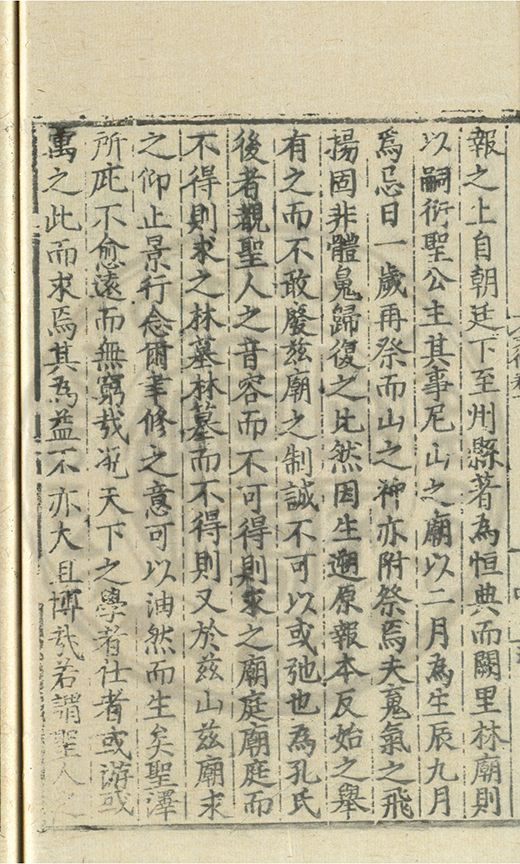 報之上自朝廷下至州縣著為恒典而闕里林廟則
以嗣衍聖公主其事尼山之廟以二月為生辰九月
為忌日一歲再祭而山之神亦附祭焉夫䰟氣之飛
揚固非體鬼歸復之比然因生遡原報本反始之舉
有之而不敢廢玆廟之制誠不可以或弛也為孔氏
後者觀聖人之音容而不可得則求之廟庭廟庭而
不得則求之林墓林墓而不得則又於玆山玆廟求
之仰止景行念爾聿修之意可以油然而生矣聖澤
所庇不愈遠而無窮㢤况天下之學者仕者或游或
寓之此而求焉其為益不亦大且博㢤若謂聖人之